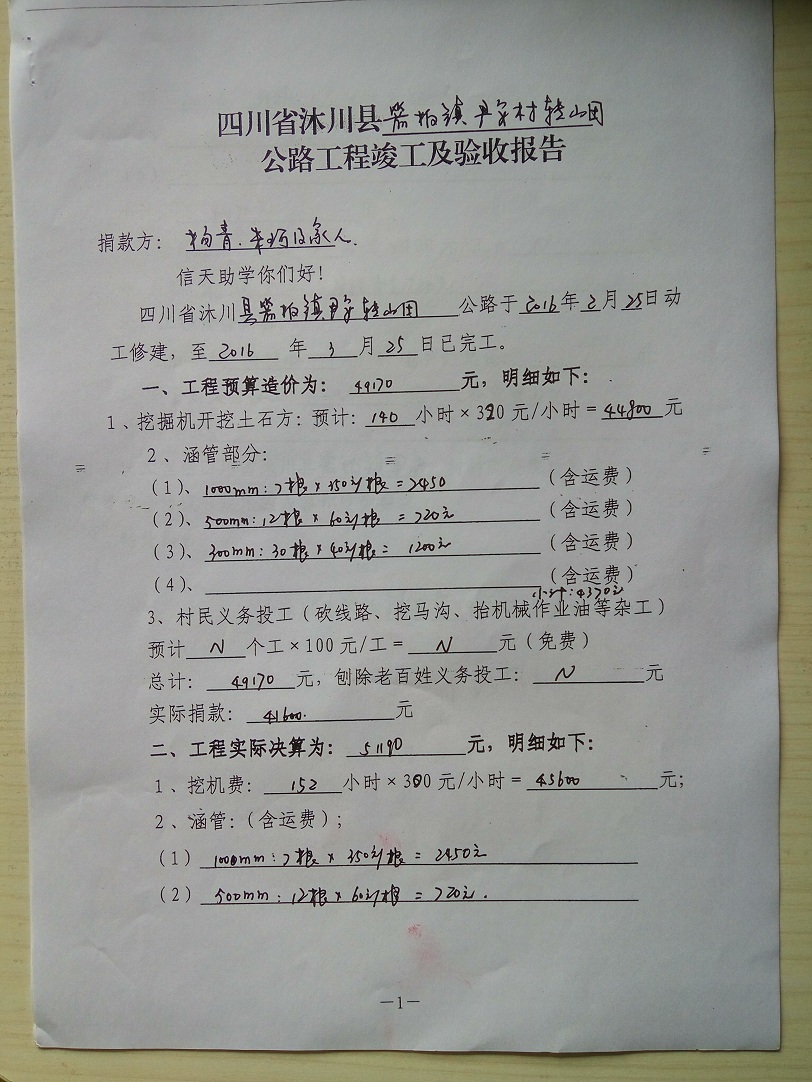 四川省沐川县箭板镇尹家村转山田
公路工程竣工及验收报告
捐款方：杨青.朱珂及家人.
信天助学你们好!
四川省沐川县箭板镇尹家转山田公路于2016年2月25日动
工修建，至2016年3月25日已完工。
一、工程预算造价为：49170元，明细如下：
1、挖掘机开挖土石方：预计：140小时×320元/小时=44800元
2、涵管部分：
(1)、1000mm:7根×350元/根=2450(含运费)
(2)、500mm:12根×60元/根=720元(含运费)
(3)、300mm:30根×40元/根=1200元(含运费)
(4)、(含运费)
小计:4370元
3、村民义务投工(砍线路、挖马沟、抬机械作业油等杂工)
预计N个工×100元/工=N元(免费)
总计：49170元，刨除老百姓义务投工：N元
实际捐款：41600.元
二、工程实际决算为：51190元，明细如下：
1、挖机费：152小时×300元/小时=45600元;
2、涵管:(含运费);
(1)1000mm:7根×350元/根=2450元
(2)500mm:12根×60元/根=720元.
—1—